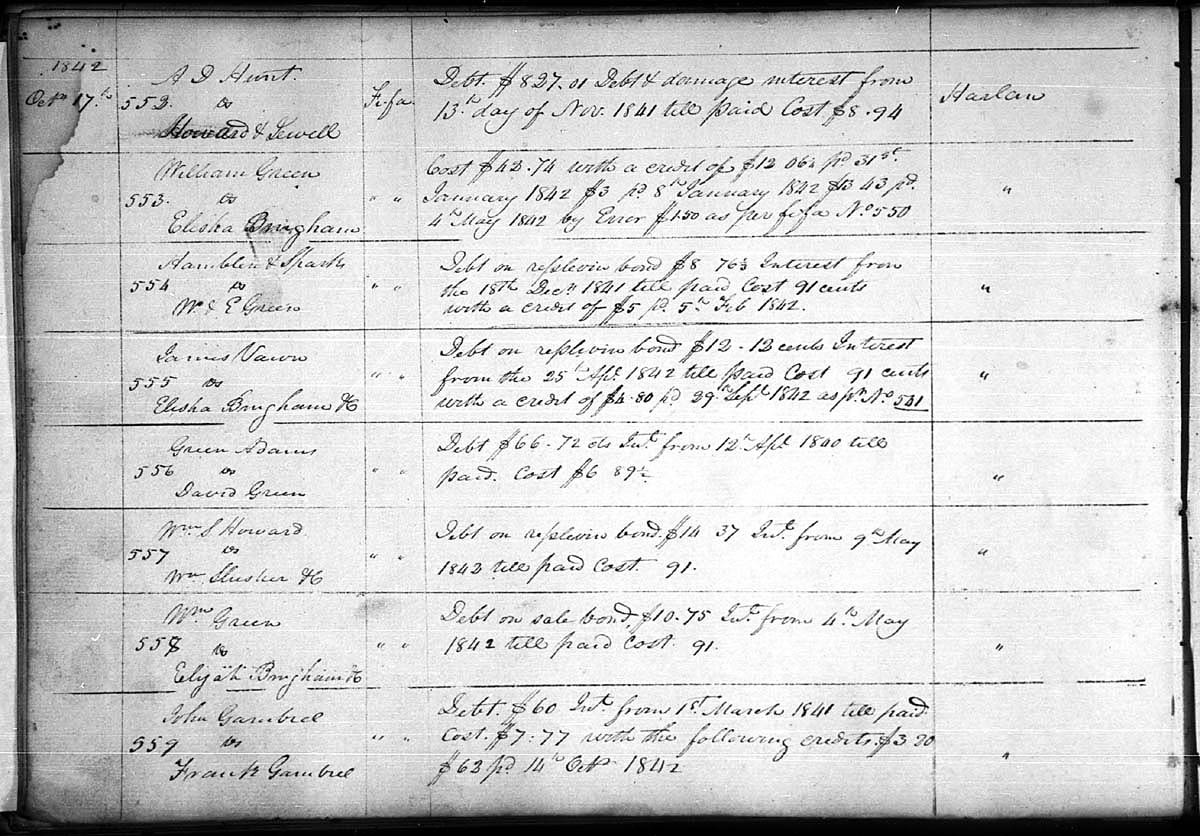 1842
Octr 17th
A D Hunt.
552. vs
Howard & Sewell
Fi fa
Debt. $827.01 Debt & damage interest from
13th day of Nov. 1841 till paid Cost $8.94
Harlan
William Green
553. vs
Elisha Bringham
" "
Cost $42.74 with a credit of $12 06¼ pd 31st
January 1842 $3 pd 8th January 1842 $13 43 pd
4th May 1842 by Error $1.50 as per fi fa No 550
"
Hamblin & Sparks
554 vs
Wm & E Green
" "
Debt on replevin bond $8 76½ Interest from
the 18th Decr 1841 till paid Cost 91 cents
with a credit of $5 pd 5th Feb 1842.
"
James Vawn
555 vs
Elisha Bringham &C
" "
Debt on replevin bond $12-12 cents Interest
from the 25th Apl 1842 till paid Cost 91 cents
with a credit of $4.80 pd 29th Sept 1842 as pr No 541
"
Green Adams
556 vs
David Green
" "
Debt $66-72 cts Int from 12th Apl 1840 till
paid. Cost $6 89½
"
Wm S Howard
557 vs
Wm Slusher &C
" "
Debt on replevin bond $14 37 Int from 9th May
1842 till paid Cost. 91.
"
Wm Green
558 vs
Elijah Bringham &C
" "
Debt on sale bond $10-75 Int from 4th May
1842 till paid Cost. 91.
"
John Gambrel
559 vs
Frank Gambrel
" "
Debt. $60 Int from 1st March 1841 till paid
Cost. $7.77 with the following credits $3.20
$63 pd 14th Octr 1842
"